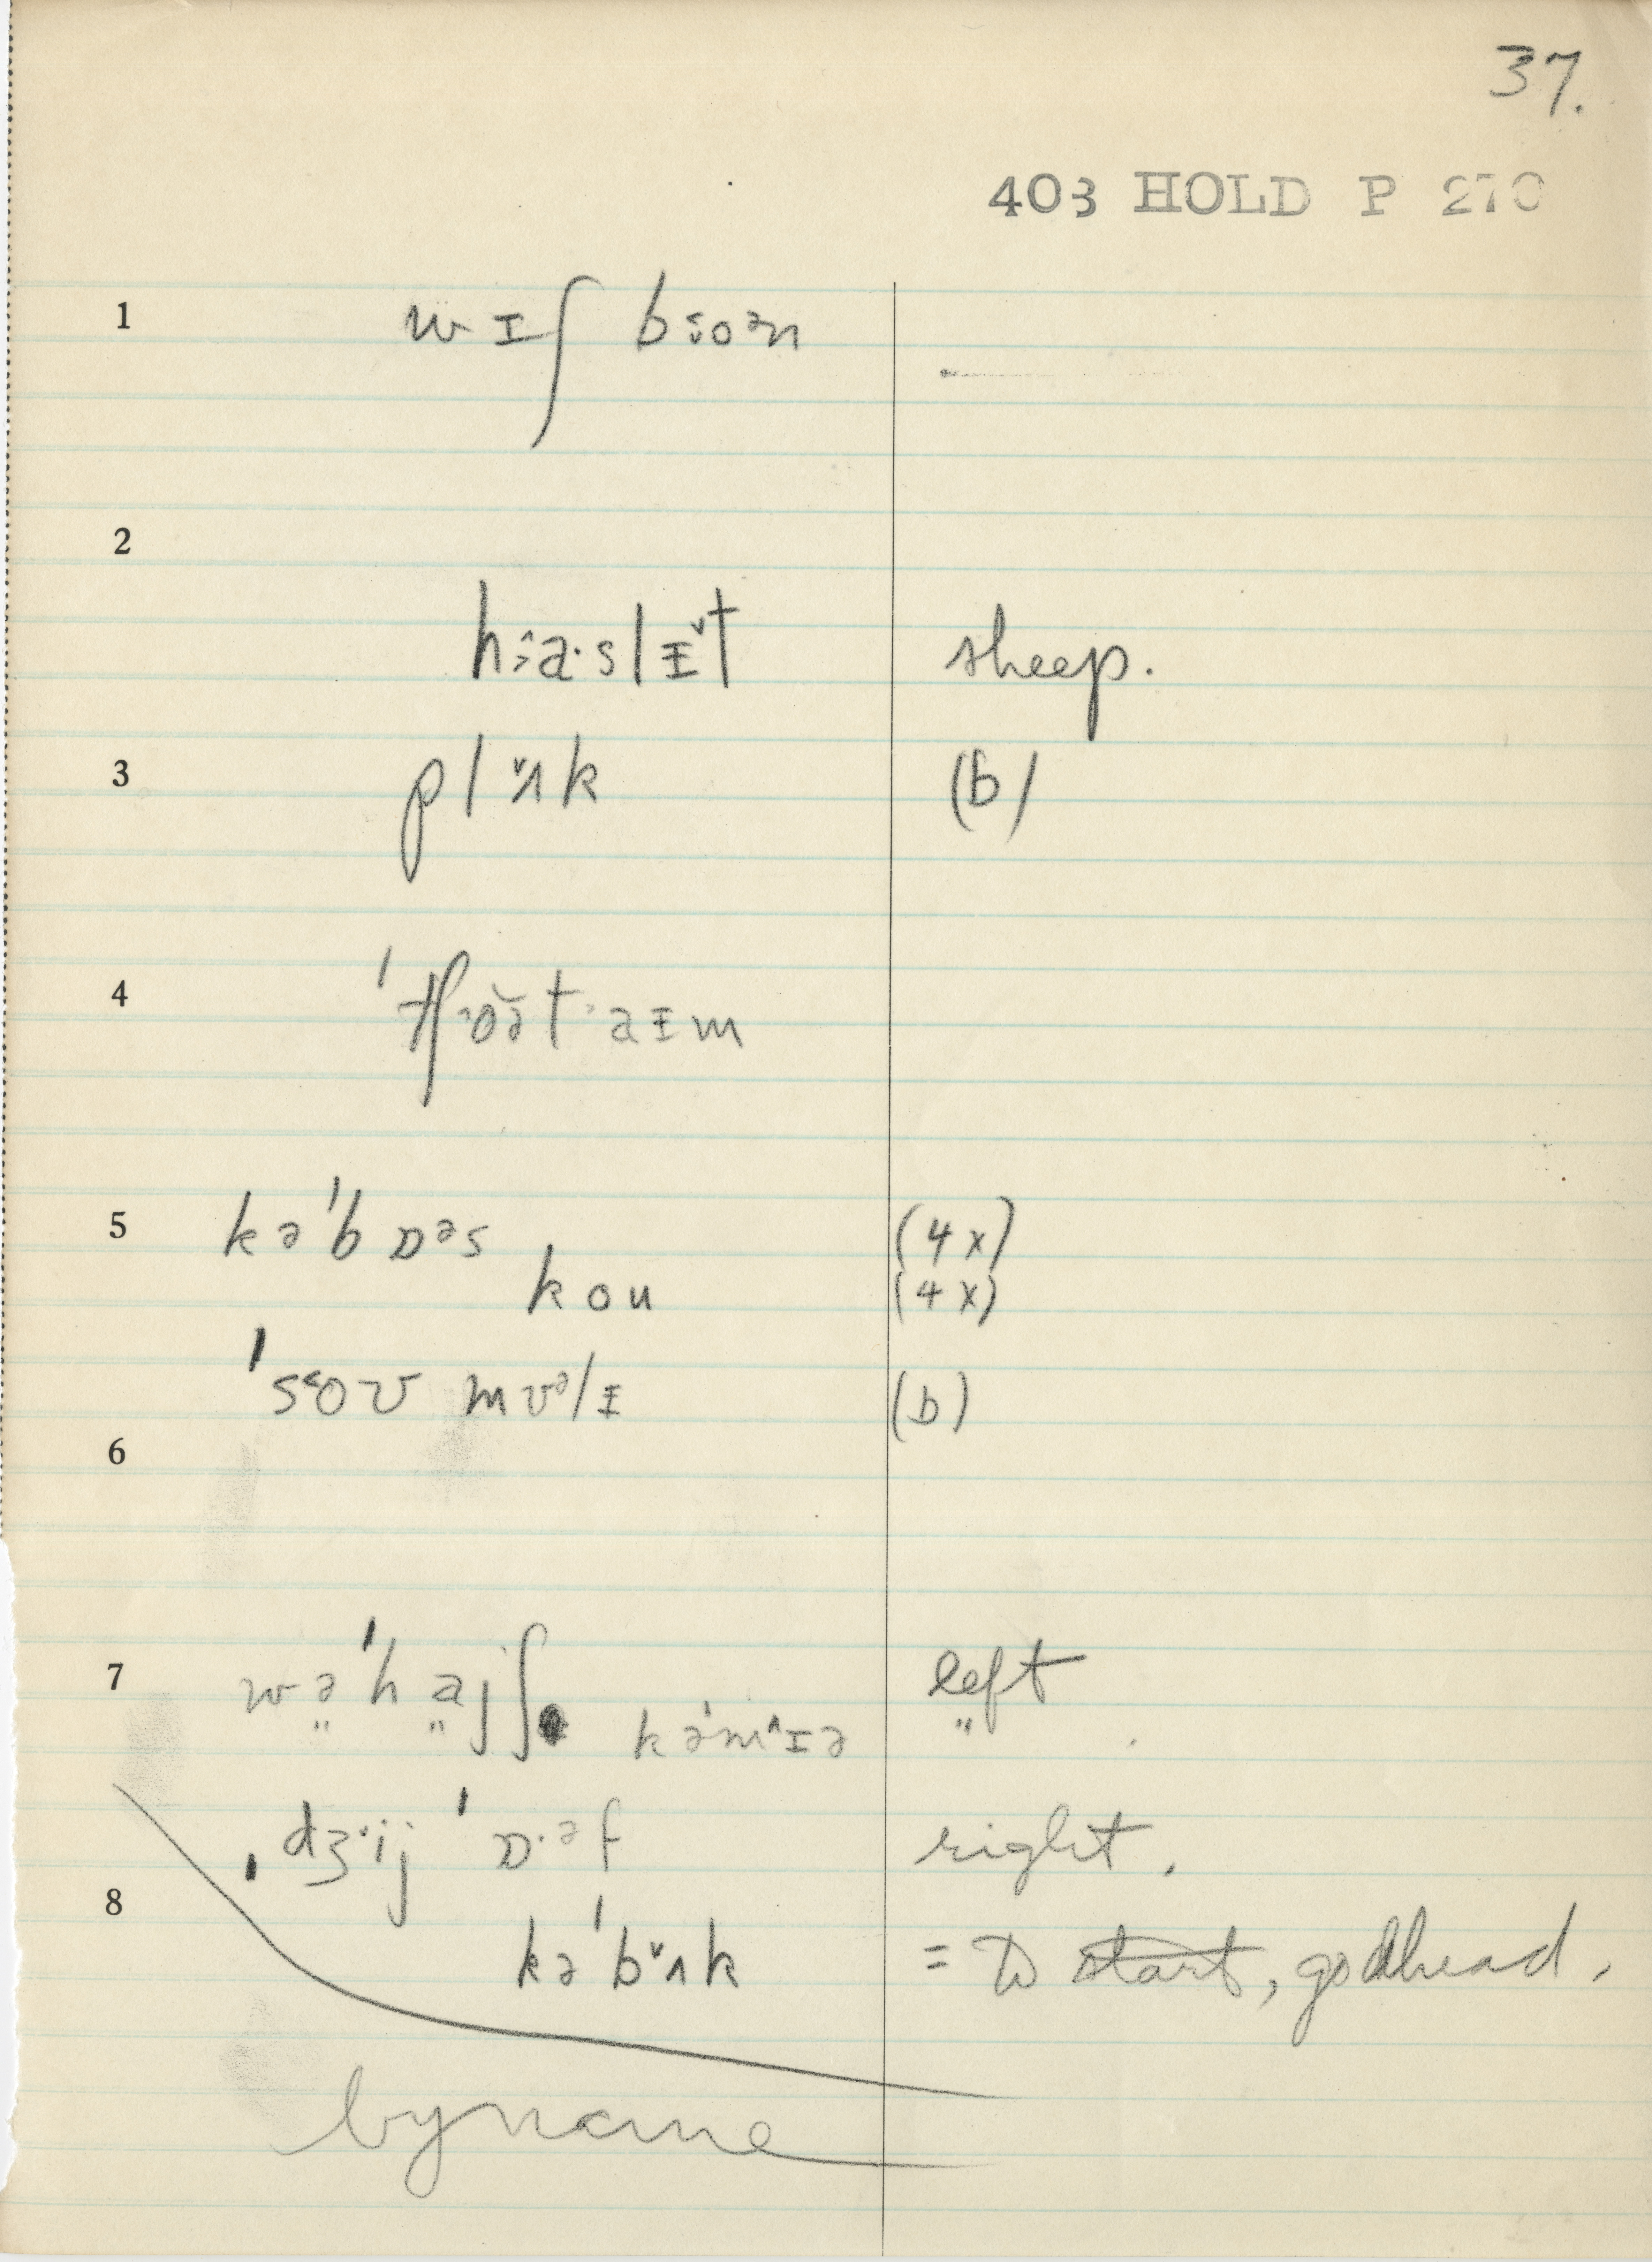 37.
403 HOLD P 270
1 wɪʃ boən
2
haslɪt sheep.
3 plʌk (b)
4 ˈtʃoət aɪm
5 kəˈbɒəs (4x)
kou (4x)
ˈsov mvəlɪ (b)
6
7 wəˈhajʃ left
" " kəˈmɪə "
ˌdʒij ˈɒəf right.
8
kəˈbʌk = to start, go ahead.
byname